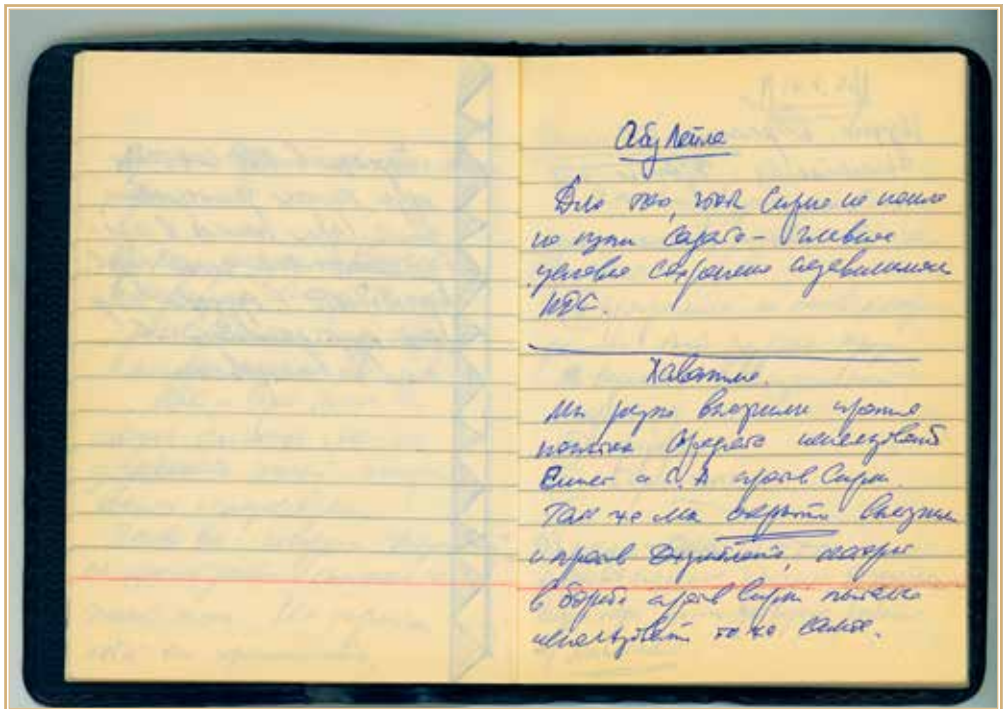 Абу Лейла
Для того, чтоб Сирия не пошла
по пути Садата – главное
условие сохранение независимости
ПДС.
Хаватме.
Мы резко выступили против
попытки использовать
Египет и С.А против Сирии.
Так же мы открыто выступили
и против Джумблата, который
в борьбе против Сирии пытался
использовать то же самое.